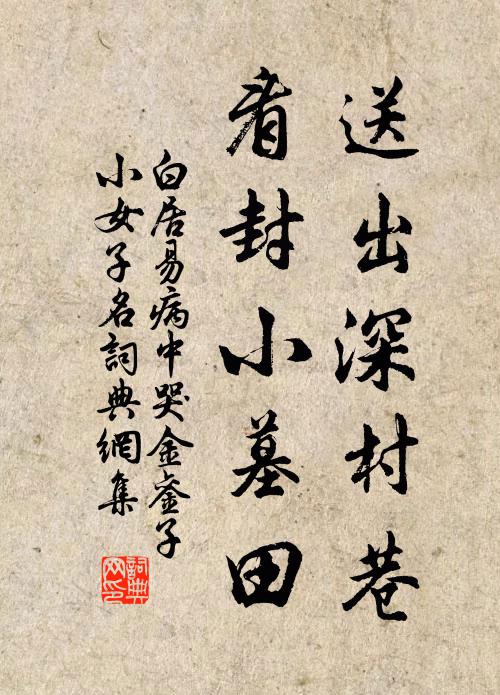 送出深村巷
看封小墓田
白居易病中哭金銮子
小女子名詞典網集
詞典
网印